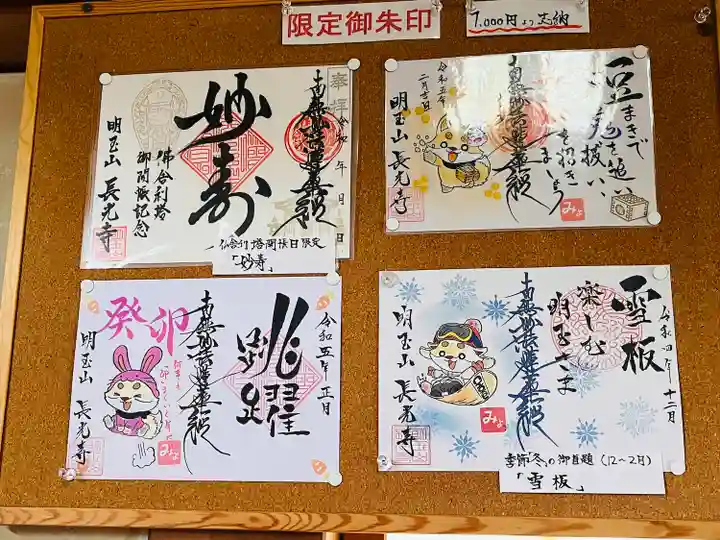 限定御朱印
7,000円より志納
奉拝 令和 年 月 日
南無妙法蓮華経
妙寿
佛舎利塔
御開帳記念
明玉山 長光寺
仏舎利塔開帳日限定
「妙寿」
豆まきで
鬼を追い
南無妙法蓮華経
令和五年
明玉山 長光寺
みょ
令和五年正月
跳躍
南無妙法蓮華経
癸卯
明玉山 長光寺
みょ
令和四年十二月
雪板
楽しむ
明玉さま
南無妙法蓮華経
明玉山 長光寺
みょ
季節「冬」の御首題(12〜2月)
「雪板」